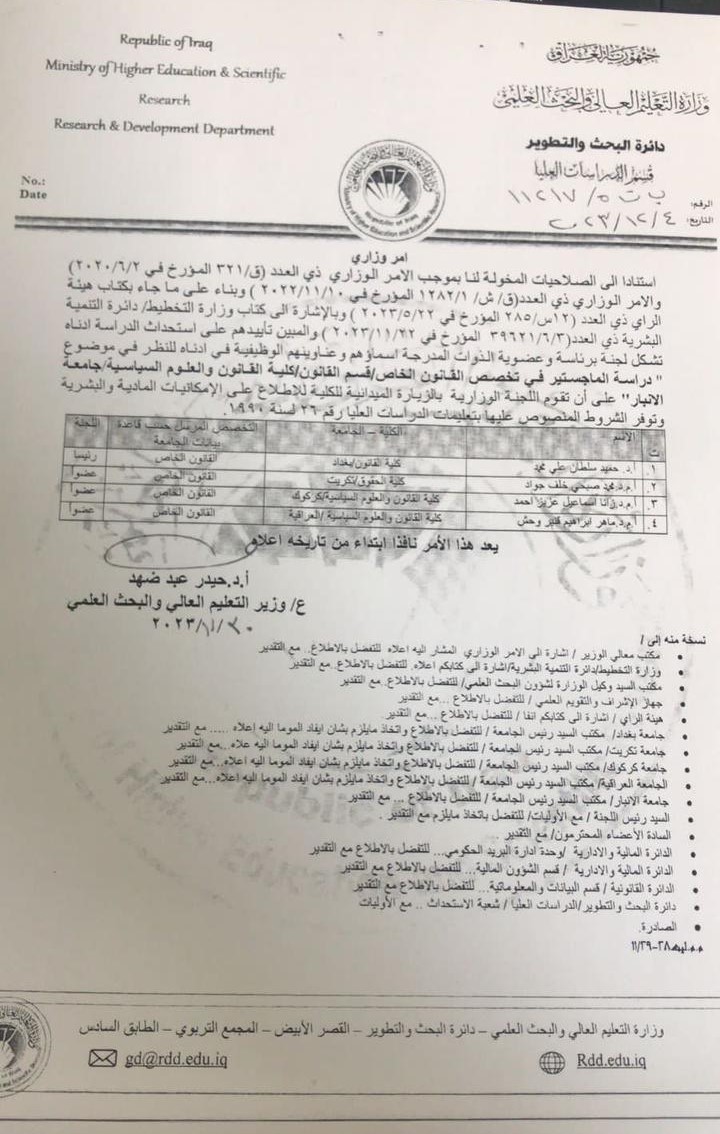 Republic of Iraq
Ministry of Higher Education & Scientific
Research
Research & Development Department
No.:
Date
جمهورية العراق
وزارة التعليم العالي والبحث العلمي
دائرة البحث والتطوير
قسم الدراسات العليا
الرقم: ب ت ٥/ ١١٢١٧
التاريخ: ٢٠٢٣/١٢/٤
امر وزاري
استنادا الى الصلاحيات المخولة لنا بموجب الامر الوزاري ذي العدد (ق/٣٢١ المؤرخ في ٢٠٢٠/٦/٢)
والامر الوزاري ذي العدد(ق/ ش/ ١٢٨٢/١ المؤرخ في ٢٠٢٢/١١/١٠ ) وبناء على ما جاء بكتاب هيئة
الراي ذي العدد (١٢س/٢٨٥ المؤرخ في ٢٠٢٣/٥/٢٢ ) وبالإشارة الى كتاب وزارة التخطيط/ دائرة التنمية
البشرية ذي العدد(٣٩٦٢١/٦/٣ المؤرخ في ٢٠٢٣/١١/٢٢ ) والمبين تأييدهم على استحداث الدراسة ادناه
تشكل لجنة برئاسة وعضوية الذوات المدرجة اسماؤهم وعناوينهم الوظيفية في ادناه للنظر في موضوع
" دراسة الماجستير في تخصص القانون الخاص/قسم القانون/كلية القانون والعلوم السياسية/جامعة
الانبار" على أن تقوم اللجنة الوزارية بالزيارة الميدانية للكلية للاطلاع على الإمكانيات المادية والبشرية
وتوفر الشروط المنصوص عليها بتعليمات الدراسات العليا رقم ٢٦ لسنة ١٩٩٠.
ت الاسم الكلية – الجامعة التخصص المرسل حسب قاعدة بيانات الجامعة اللجنة
١. أ.د. حميد سلطان علي محمد كلية القانون/بغداد القانون الخاص رئيسا
٢. أ.م.د.محمد صبحي خلف جواد كلية الحقوق/تكريت القانون الخاص عضوا
٣. أ.م.د.زانا اسماعيل عزيز احمد كلية القانون والعلوم السياسية/كركوك القانون الخاص عضوا
٤. أ.م.د.ماهر ابراهيم قنبر وحش كلية القانون والعلوم السياسية /العراقية القانون الخاص عضوا
يعد هذا الأمر نافذا ابتداء من تاريخه اعلاه
أ.د.حيدر عبد ضهد
ع/ وزير التعليم العالي والبحث العلمي
٢٠٢٣/١١/٣٠
نسخة منه إلى /
مكتب معالي الوزير / اشارة الى الامر الوزاري المشار اليه اعلاه للتفضل بالاطلاع.. مع التقدير
وزارة التخطيط/دائرة التنمية البشرية/اشارة الى كتابكم اعلاه. للتفضل بالاطلاع.. مع التقدير
مكتب السيد وكيل الوزارة لشؤون البحث العلمي/ للتفضل بالاطلاع.. مع التقدير
جهاز الإشراف والتقويم العلمي / للتفضل بالاطلاع ...مع التقدير
هيئة الراي / اشارة الى كتابكم انفا / للتفضل بالاطلاع ...مع التقدير.
جامعة بغداد/ مكتب السيد رئيس الجامعة / للتفضل بالاطلاع واتخاذ مايلزم بشان ايفاد الموما اليه إعلاه ..... مع التقدير
جامعة تكريت/ مكتب السيد رئيس الجامعة / للتفضل بالاطلاع واتخاذ مايلزم بشان ايفاد الموما اليه علاه...مع التقدير
جامعة كركوك/ مكتب السيد رئيس الجامعة / للتفضل بالاطلاع واتخاذ مايلزم بشان ايفاد الموما اليه اعلاه...مع التقدير
الجامعة العراقية/ مكتب السيد رئيس الجامعة / للتفضل بالاطلاع واتخاذ مايلزم بشان ايفاد الموما اليه اعلاه...مع التقدير
جامعة الانبار/ مكتب السيد رئيس الجامعة / للتفضل بالاطلاع ... مع التقدير
السيد رئيس اللجنة / مع الأوليات/ للتفضل باتخاذ مايلزم مع التقدير .
السادة الأعضاء المحترمون/ مع التقدير ..
الدائرة المالية والادارية /وحدة ادارة البريد الحكومي... للتفضل بالاطلاع مع التقدير
الدائرة المالية والادارية / قسم الشؤون المالية... للتفضل بالاطلاع مع التقدير
الدائرة القانونية / قسم البيانات والمعلوماتية... للتفضل بالاطلاع مع التقدير
دائرة البحث والتطوير/الدراسات العليا / شعبة الاستحداث .. مع الأوليات
الصادرة.
وزارة التعليم العالي والبحث العلمي – دائرة البحث والتطوير – القصر الأبيض – المجمع التربوي – الطابق السادس
gd@rdd.edu.iq
Rdd.edu.iq